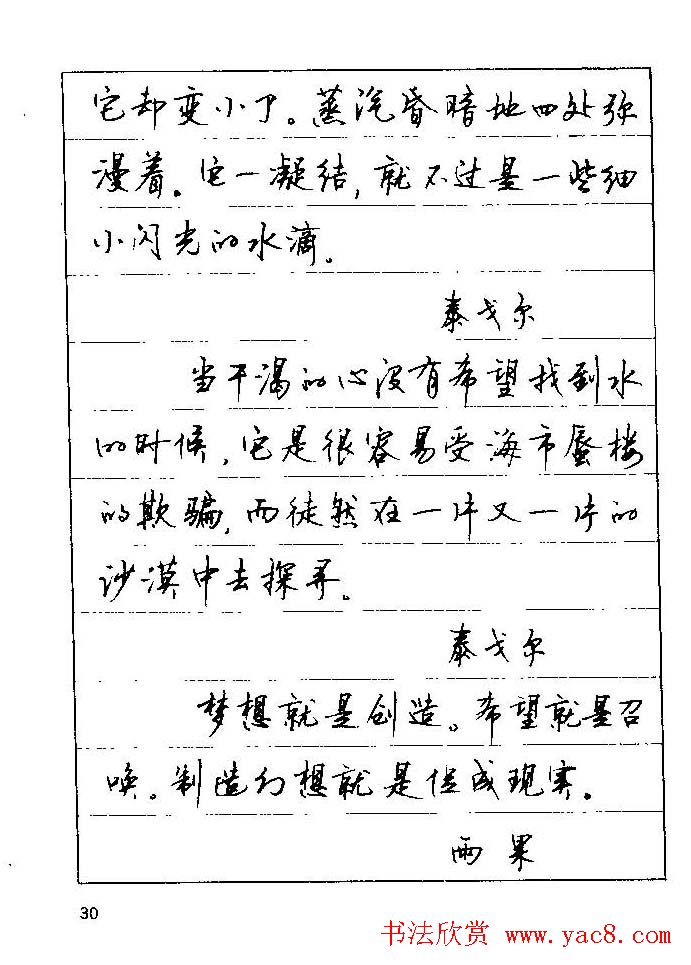 它却变小了。蒸汽昏暗地四处弥
漫着。它一凝结,就不过是一些细
小闪光的水滴。
泰戈尔
当干渴的心没有希望找到水
的时候,它是很容易受海市蜃楼
的欺骗,而徒然在一片又一片的
沙漠中去探寻。
泰戈尔
梦想就是创造。希望就是召
唤。制造幻想就是促成现实。
雨果
30
书法欣赏 www.yac8.com